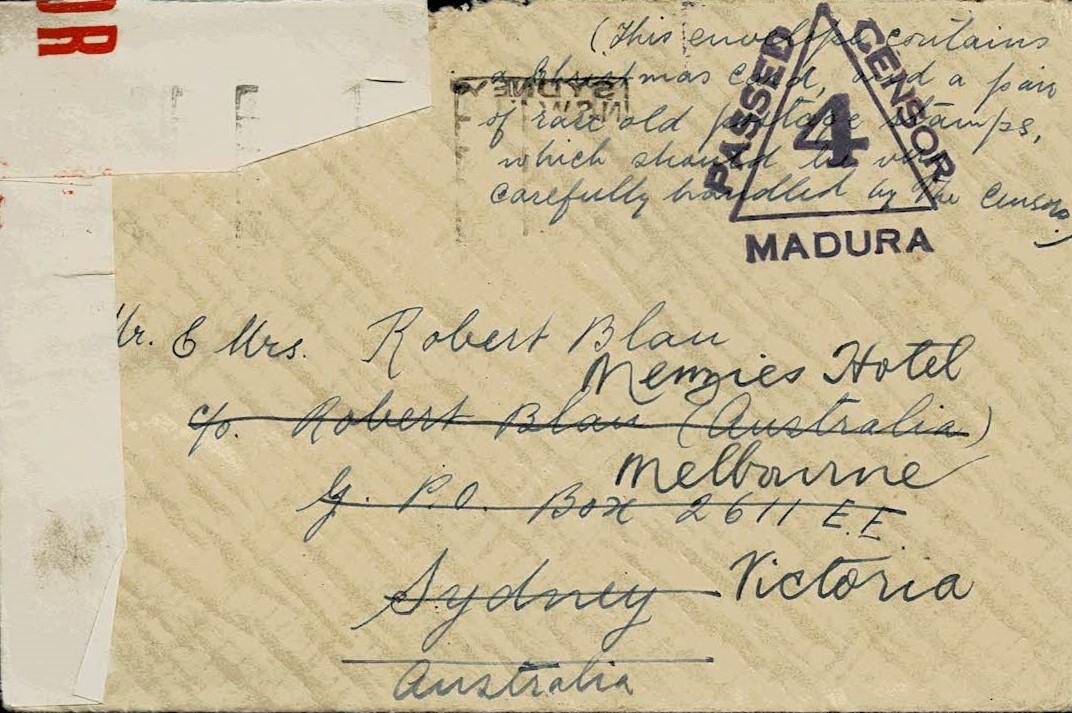 OR
(This envelope contains
a Christmas card, and a pair
of rare old postage stamps,
which should be very
carefully handled by the Censor.)
SYDNEY
N.S.W.
PASSED CENSOR
4
MADURA
Mr. & Mrs. Robert Blau
Menzies Hotel
c/o. Robert Blau (Australia)
Melbourne
G. P.O. Box 2611 E.E.
Sydney Victoria
Australia